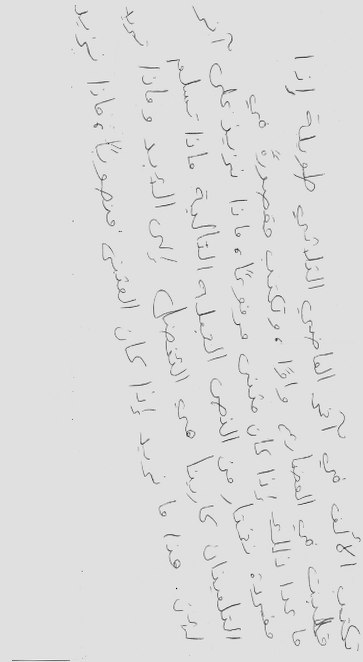 تكتب الألف في آخر الماضي الثلاثي طويلة إذا
قلبت في المضارع واوًا، وتكتب مقصورة في
ما عدا ذلك إذا كان مثنى مرفوعًا، ماذا نزيد على آخر
مفرده نختار من النص الجملة التالية ماذا تسلم
التلميذان هي التفضل إلى وماذا نريد
هذا ما نريد إذا كان المثنى منصوبًا، ماذا نزيد